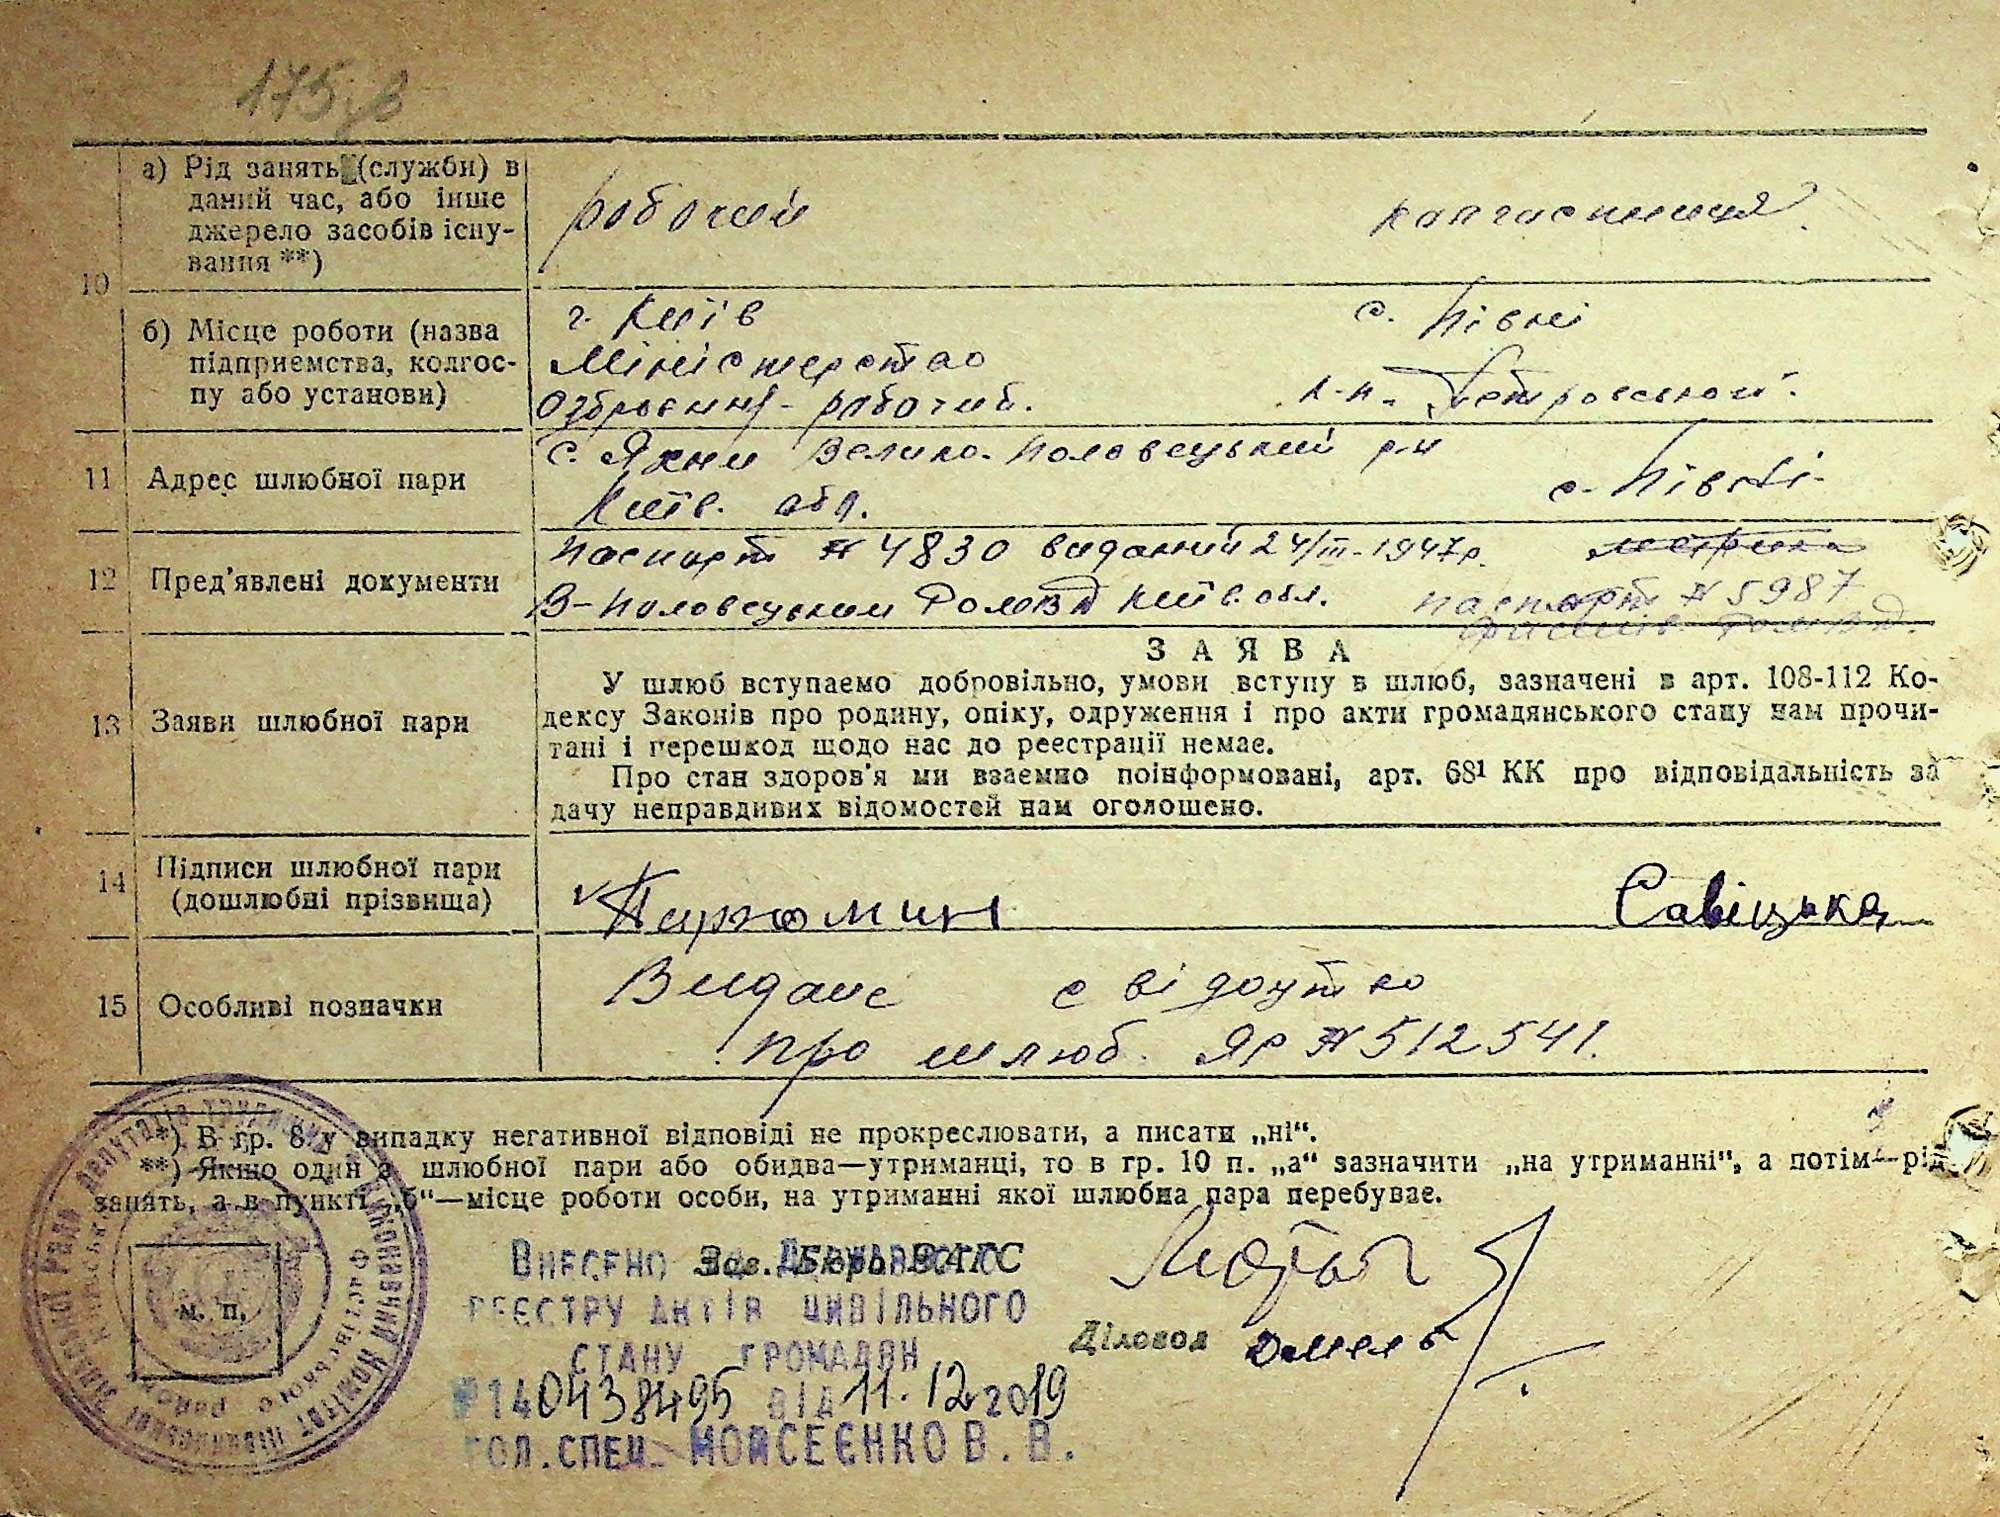 175зв
10
а) Рід занять (служби) в
даний час, або інше
джерело засобів існу-
вання **)
робочий
колгоспниця.
б) Місце роботи (назва
підприємства, колгос-
пу або установи)
г. Київ
Міністерство
Озброєння - робочий.
с. Півні
к-п. Петровський.
11
Адрес шлюбної пари
с. Яхни Велико-Половецький р-н
Київ. обл.
с. Півні.
12
Пред'явлені документи
Паспорт № 4830 виданий 24/III-1947р.
В-Половецьким РОМВД Київ. обл.
метрика
паспорт № 5987
РОМВД.
13
Заяви шлюбної пари
ЗАЯВА
У шлюб вступаємо добровільно, умови вступу в шлюб, зазначені в арт. 108-112 Ко-
дексу Законів про родину, опіку, одруження і про акти громадянського стану нам прочи-
тані і перешкод щодо нас до реєстрації немає.
Про стан здоров'я ми взаємно поінформовані, арт. 68¹ КК про відповідальність за
дачу неправдивих відомостей нам оголошено.
14
Підписи шлюбної пари
(дошлюбні прізвища)
Савіцька
15
Особливі позначки
Видане свідоцтво
про шлюб. ЯР № 512541.
*) В гр. 8 у випадку негативної відповіді не прокреслювати, а писати „ні“.
**) Якщо один з шлюбної пари або обидва—утриманці, то в гр. 10 п. „а“ зазначити „на утриманні“, а потім—рід
занять, а в пункті „б“—місце роботи особи, на утриманні якої шлюбна пара перебуває.
м. п.
Зав. Бюро ЗАГС
Діловод
Внесено до Державного
реєстру актів цивільного
стану громадян
№ 140438495 від 11.12.2019
гол. спец. Мойсеєнко В. В.